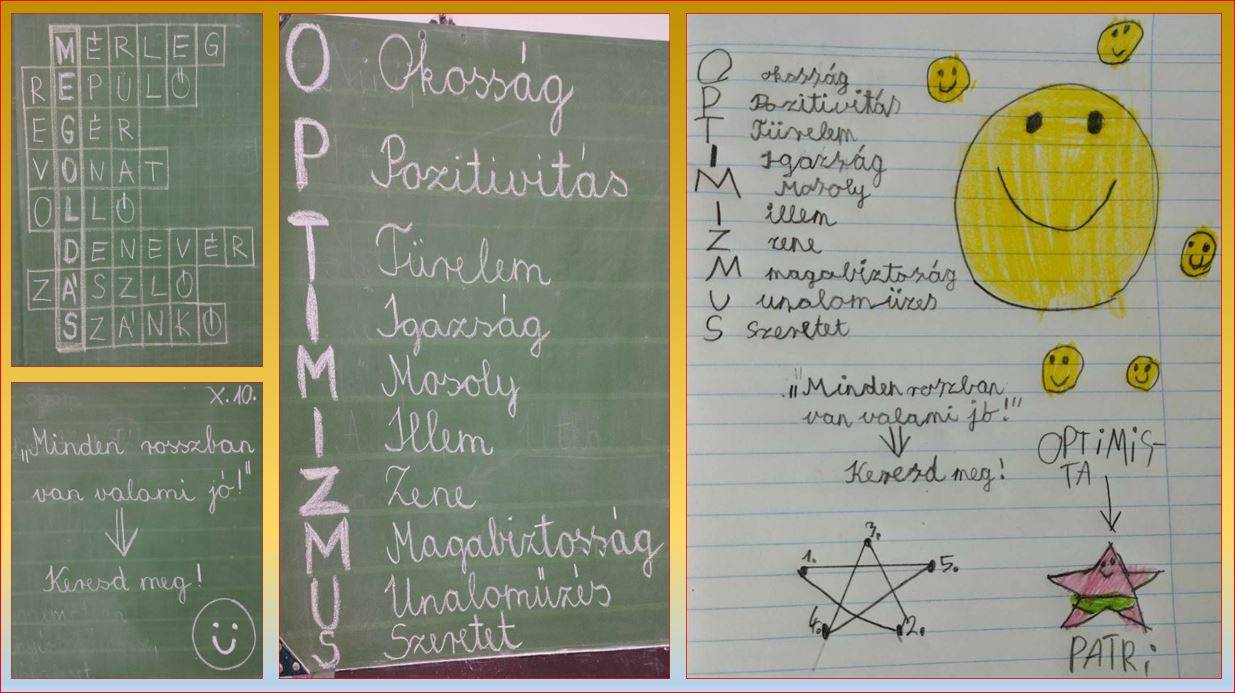 MÉRLEG
REPÜLŐ
EGÉR
VONAT
OLLÓ
DENEVÉR
ZÁSZLÓ
SZÁNKÓ
X.10.
„Minden rosszban
van valami jó!"
Keresd meg!
O Okosság
P Pozitivitás
T Türelem
I Igazság
M Mosoly
I Illem
Z Zene
M Magabiztosság
U Unaloműzés
S Szeretet
O okosság
P Pozitivitás
T Türelem
I Igazság
M Mosoly
I illem
Z zene
M magabiztoság
U unalomüzes
S Szeretet
„Minden roszban
van valami jó!"
Keresd meg!
OPTiMiS-
TA
3.
1. 5.
4. 2.
PATRi